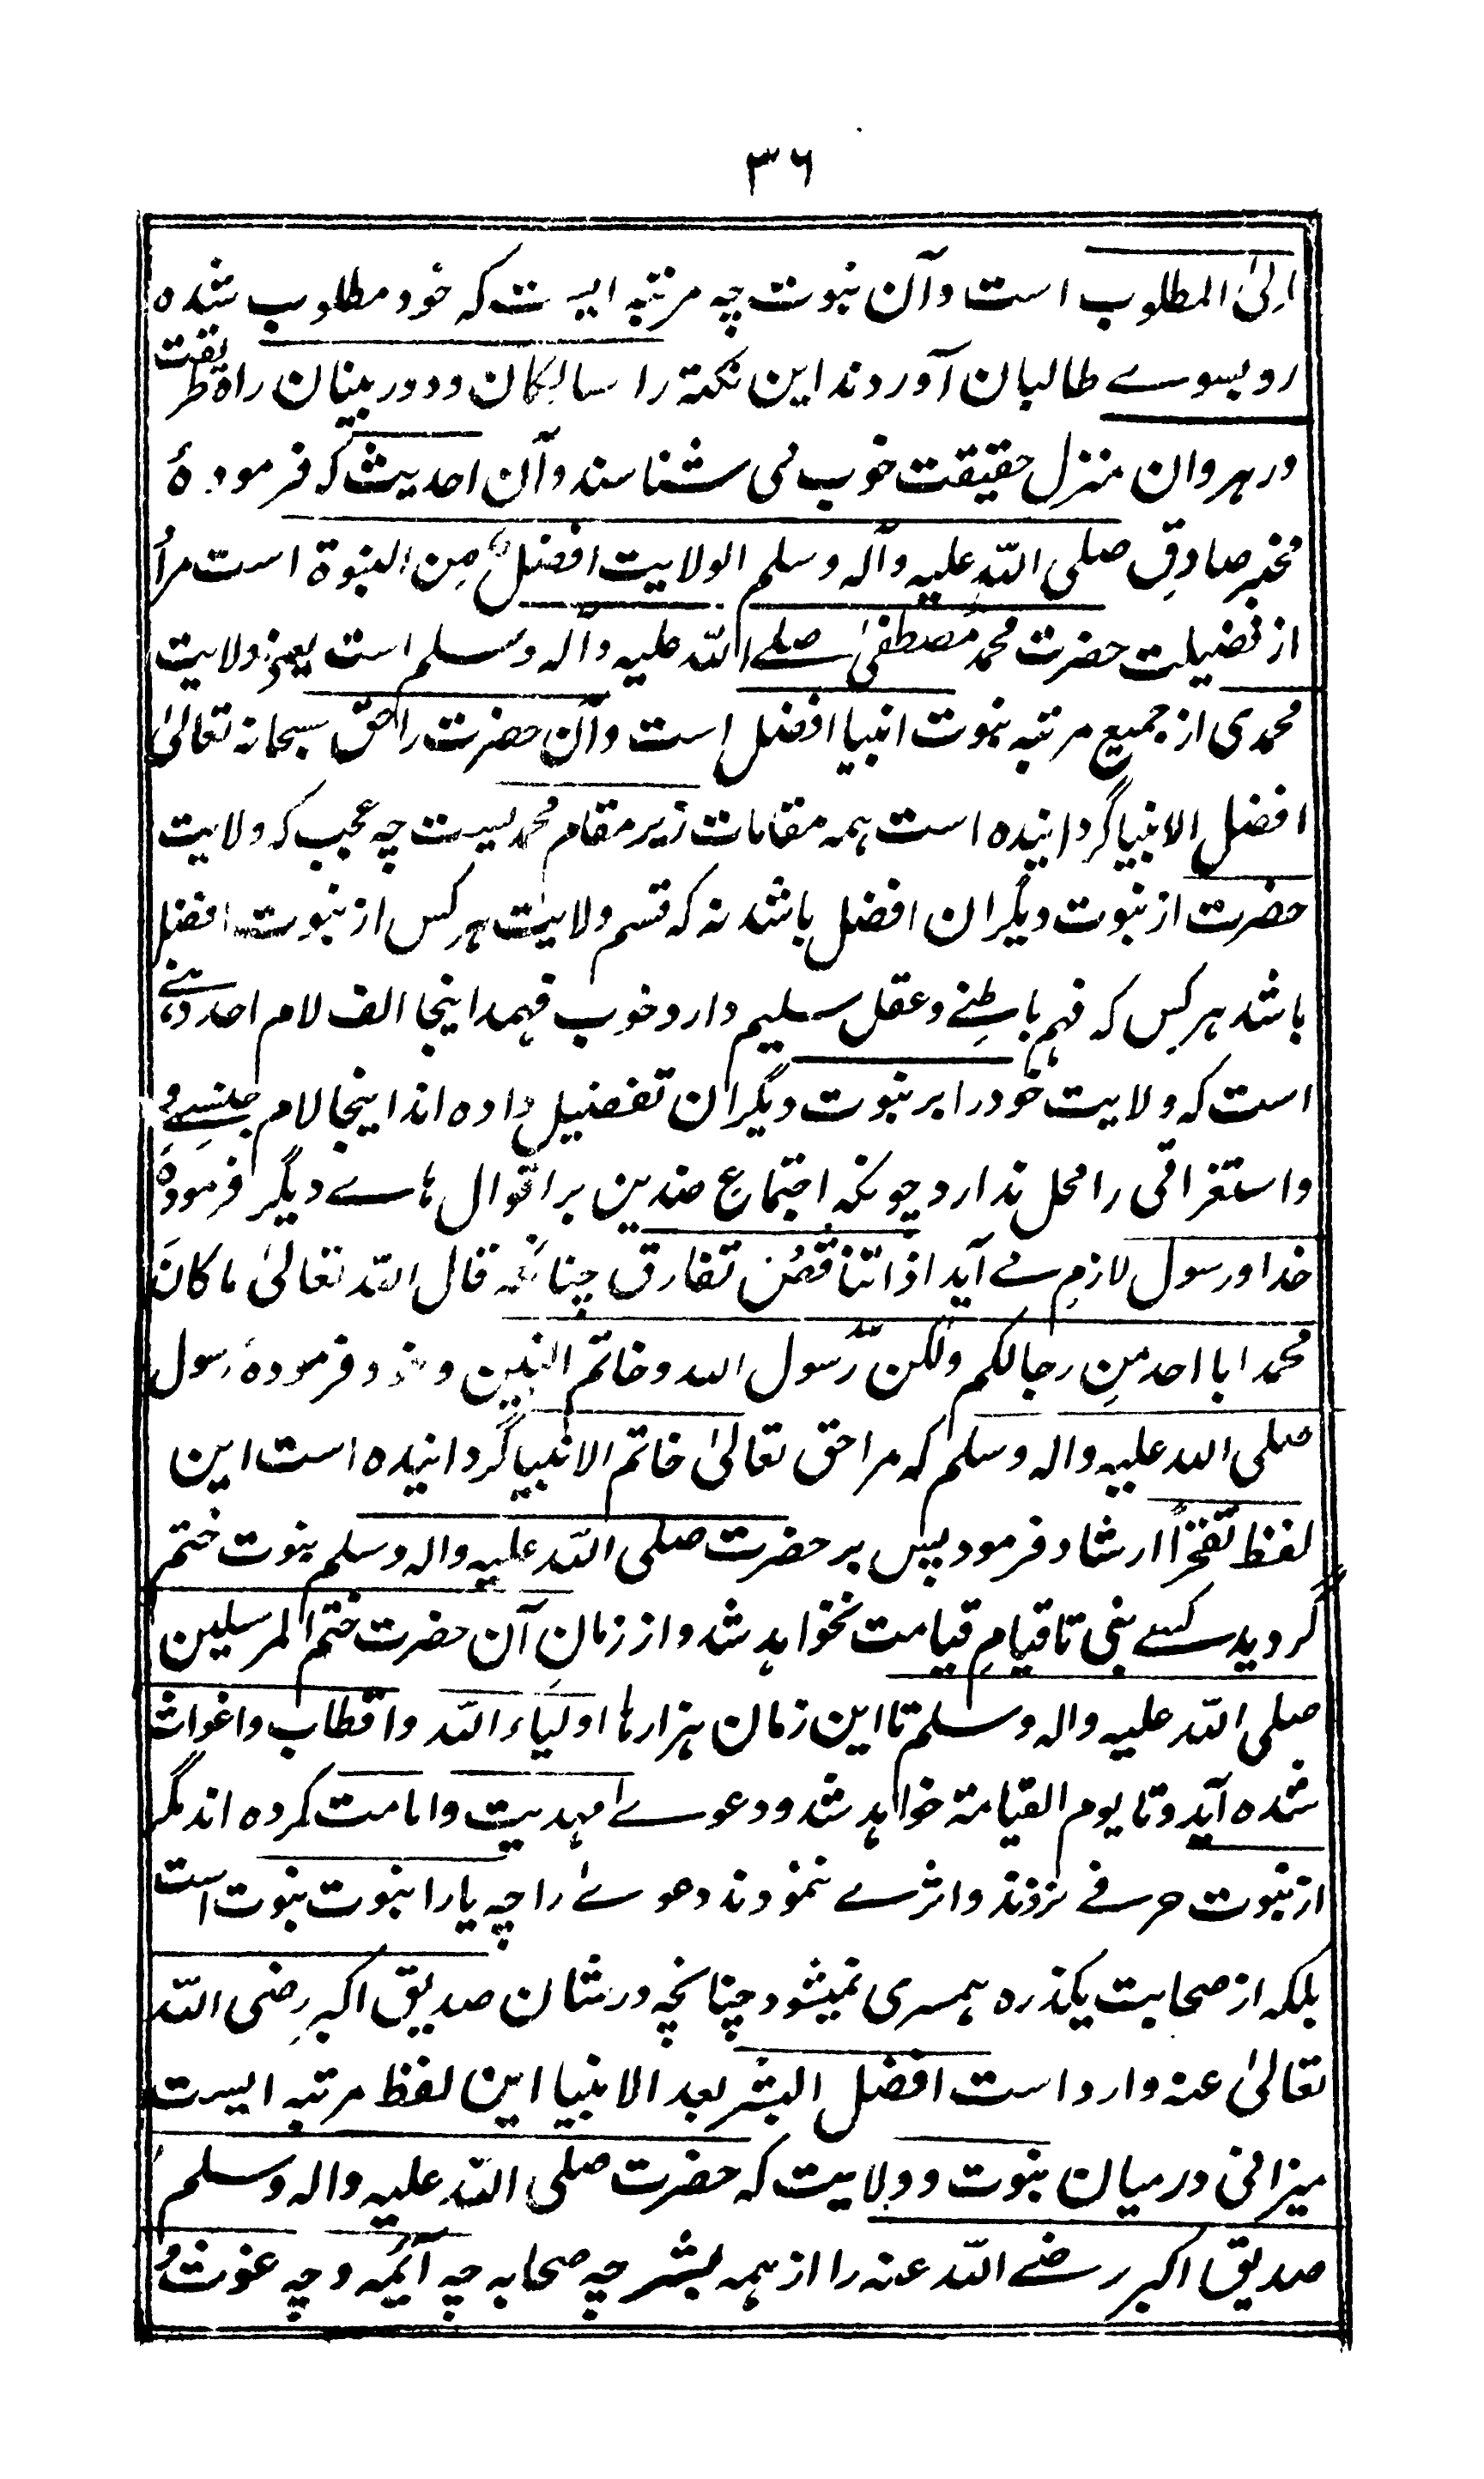 ۳۶
الیٰ المطلوب است و آن نبوت چه مرتبه ایست که خود مطلوب شده
رو بسوے طالبان آوردند این نکتہ را سالکان و دور بینان راه طریقت
و رہروان منزل حقیقت خوب می شناسند و آن احدیث که فرمودهٔ
مخبر صادقِ صلی اللّہ علیہ و آلہ و سلم الولایت افضل مِن النبوة است مراُ
از فضیلت حضرت محمد مصطفیٰ صلے اللّہ علیہ و آلہ و سلم است یعنے ولایت
محمدی از جمیع مرتبہ نبوت انبیا افضل است و آن حضرت را حق سبحانہ تعالیٰ
افضل الانبیا گردانیده است ہمہ مقامات زیر مقام محمدیست چہ عجب کہ ولایت
حضرت از نبوت دیگران افضل باشد نہ کہ قسم ولایت ہرکس از نبوت افضل
باشد ہرکس کہ فہم باطنے و عقل سلیم دارد خوب فہمد اینجا الف لام احد دہنے
است کہ ولایت خود را بر نبوت دیگران تفضیل داده اند اینجا لام جنسے و
و استغراقی را محل ندارد چونکہ اجتماع ضدین بر اقوال ہاے دیگر فرمودهٔ
خدا و رسول لازم مے آید اذ اتناقضُن تفارق چنانچہ قال اللّہ تعالیٰ ما کانَ
محمد ابا احد مِن رجالکم ولکن رّسول اللہ و خاتم النبین و خود فرمودهٔ رسول
صلی اللہ علیہ والہ وسلم کہ مرا حق تعالیٰ خاتم الانبیا گردانیده است این
لفظ تفخراً ارشاد فرمود پس بر حضرت صلی اللّہ علیہ والہ وسلم نبوت ختم
گردید کسے نبی تا قیامِ قیامت نخواہد شد و از زمانِ آن حضرت ختم المرسلین
صلی اللّہ علیہ والہ وسلم تا این زمان ہزارہا اولیاء اللّہ و اقطاب و اغواث
شده آید و تا یوم القیامة خواہد شد و دعوے مہدیت و امامت کرده اند مگر
از نبوت حرفے نزدند و اثرے ننمودند دعوے را چہ یارا نبوت نبوت است
بلکہ از صحابیت یکذره ہمسری نمیشود چنانچہ در شان صدیق اکبر رضی اللّہ
تعالیٰ عنہ وارد است افضل البشر بعد الانبیا این لفظ مرتبہ ایست
میزانی درمیان نبوت و ولایت کہ حضرت صلی اللّہ علیہ والہ وسلم
صدیق اکبر رضے اللّہ عنہ را از ہمہ بشر چہ صحابہ چہ آئمہ و چہ غوث و